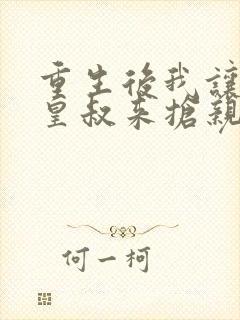 重生後我讓
皇叔来搶親
何一柯